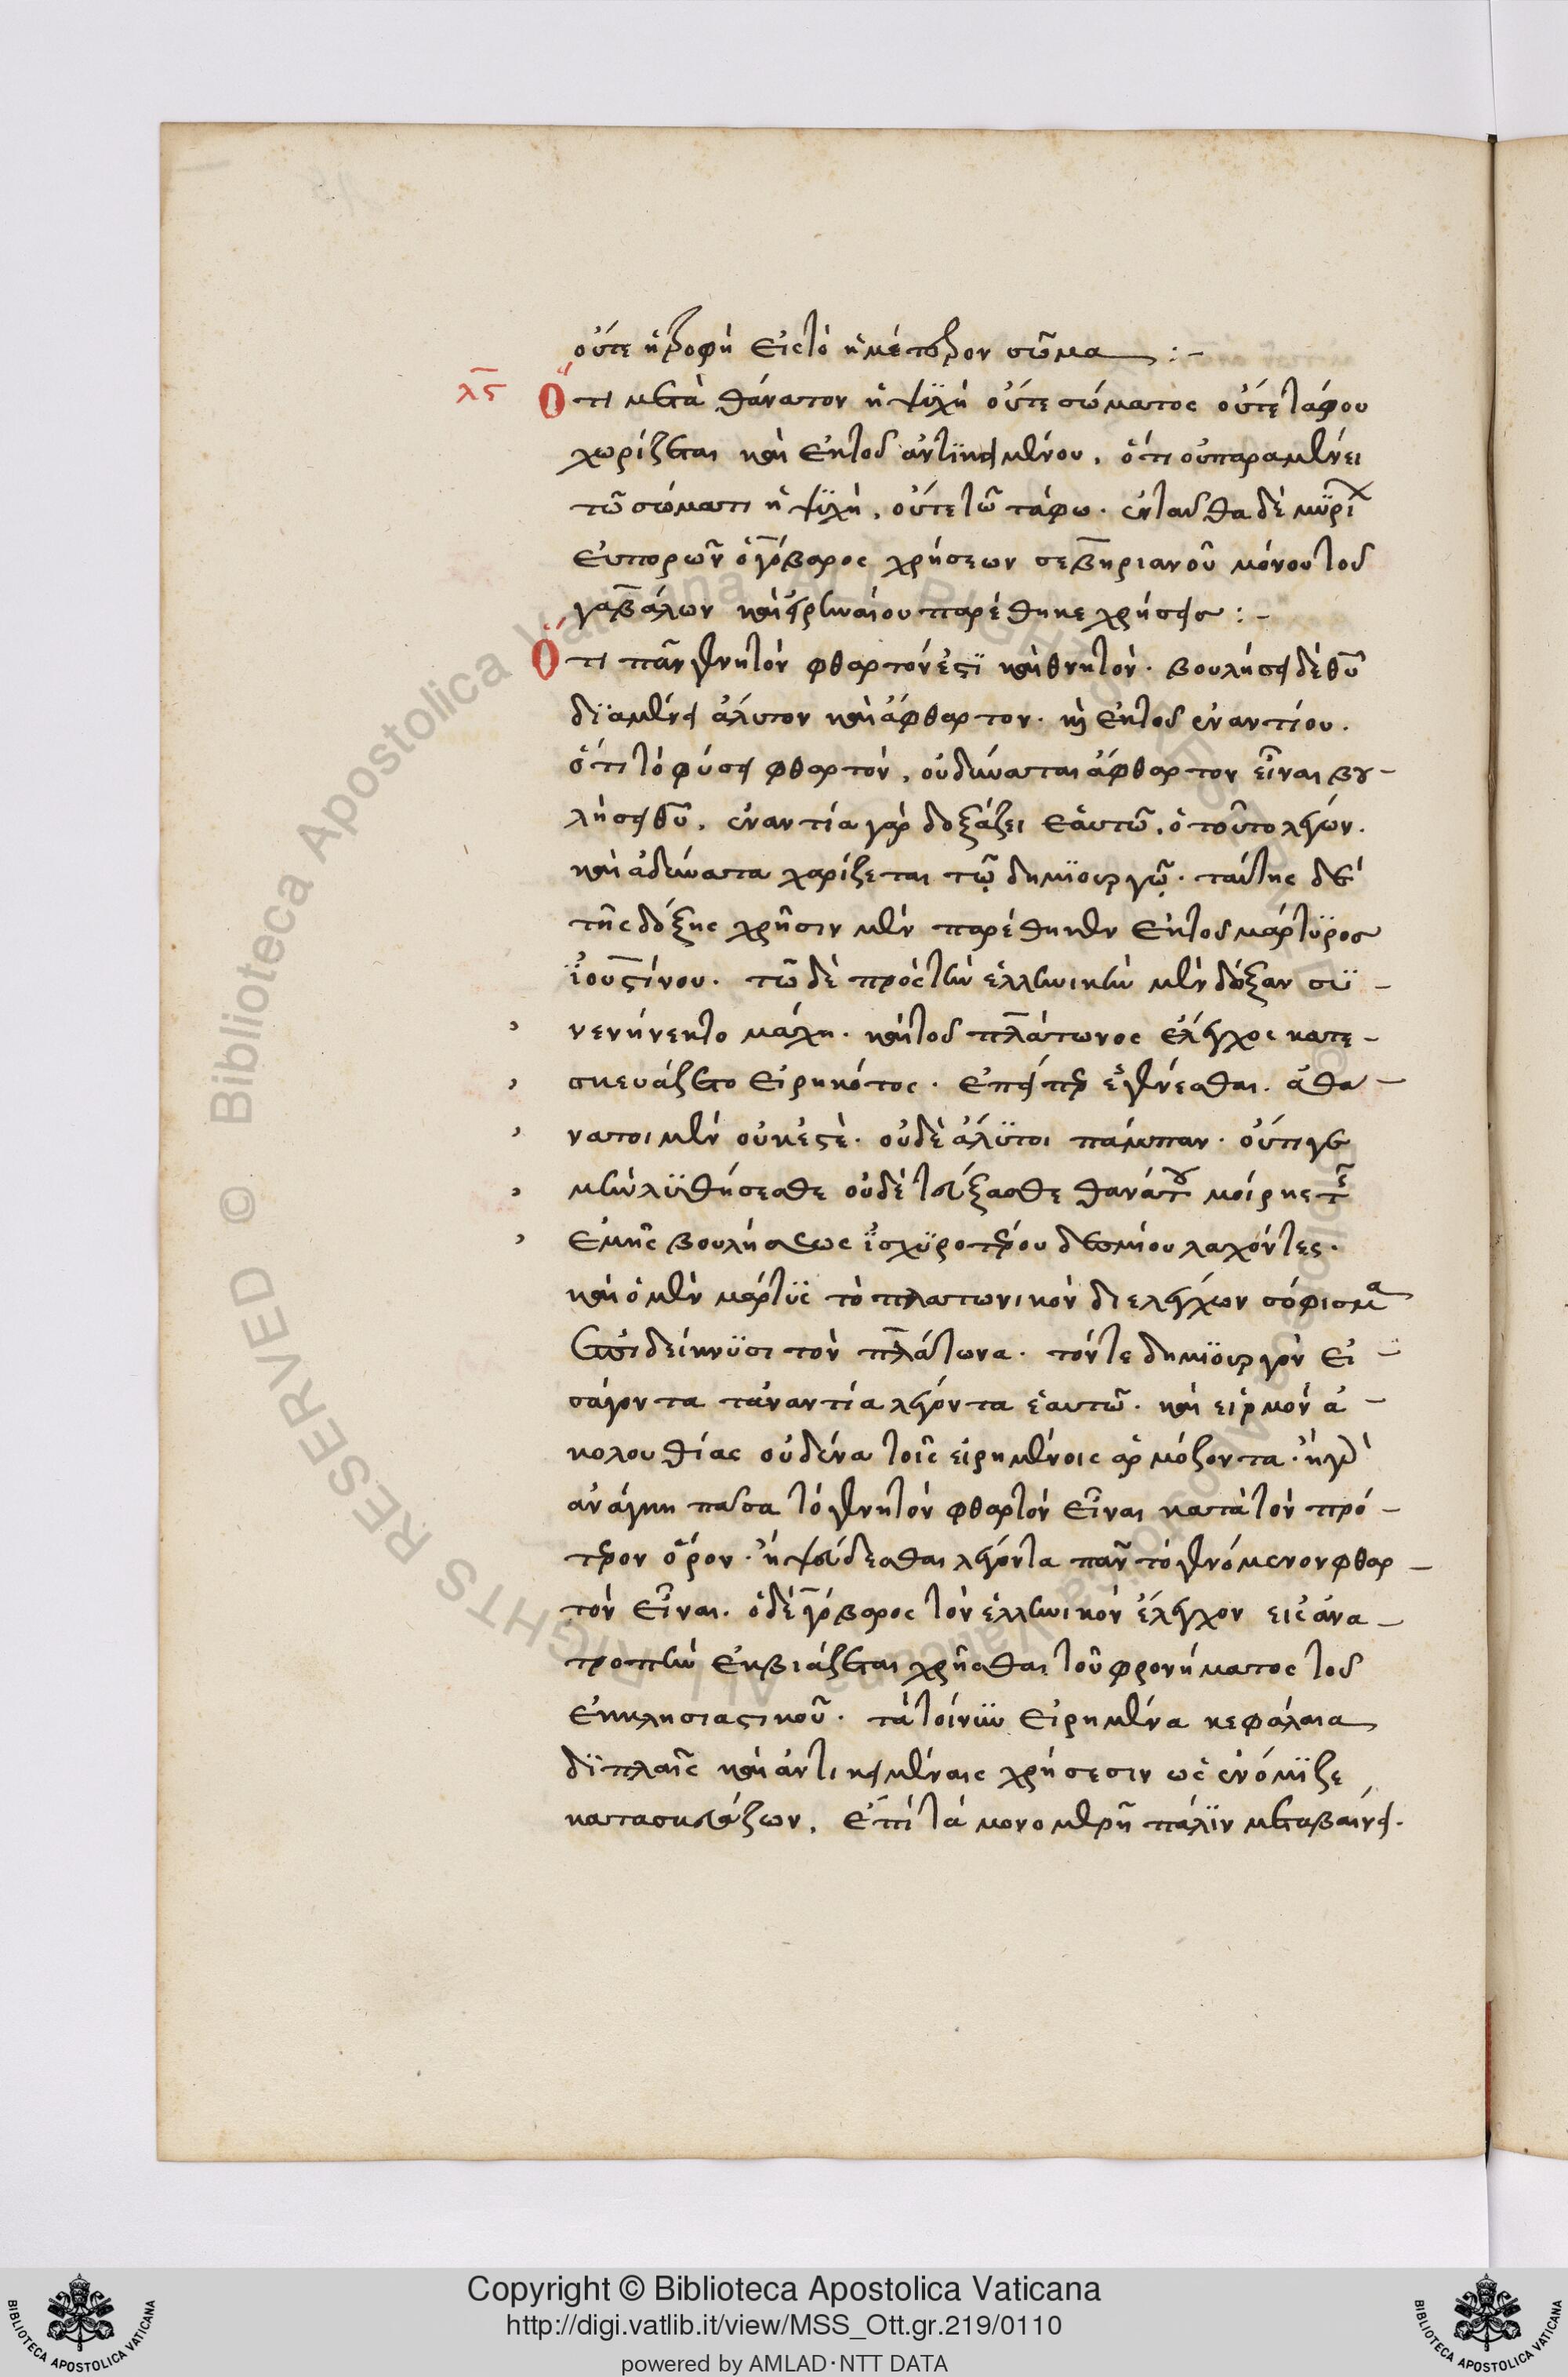 οὔτε ἡ τροφὴ εἰς τὸ ἡμέτερον σῶμα :-
λϛ Ὅτι μετὰ θάνατον ἡ ψϋχὴ οὔτε σώματος οὔτε τάφου
χωρίζεται καὶ ἐκ τοῦ ἀντϊκειμένου. ὅτι οὐ παραμένει
τῶ σώματι ἡ ψϋχὴ, οὔτε τῶ τάφω. ἐνταῦθα δὲ μϋρί
εὐπορῶν ὁ γόβαρος χρήσεων σεβηριανοῦ μόνου τοῦ
γαβάλων καὶ εἰρηναίου παρέθηκε χρήσεις :-
Ὅτι πᾶν γενητὸν φθαρτόν ἐστϊ καὶ θνητὸν. βουλήσει δὲ θῦ
δϊαμένει ἄλυτον καὶ ἄφθαρτον. καὶ ἐκ τοῦ ἐναντίου.
ὅτι τὸ φύσει φθαρτὸν, οὐ δύναται ἄφθαρτον εἶναι βου-
λήσει θῦ. ἐναντία γὰρ δοξάζει ἑαυτῶ, ὁ τοῦτο λέγων.
καὶ ἀδύνατα χαρίζεται τῷ δημϊουργῷ. ταύτης δὲ
τῆς δόξης χρῆσιν μὲν παρέθηκεν ἐκ τοῦ μάρτϋρος
ἰουστίνου. τῶ δὲ πρὸς τὴν ἑλληνικὴν μὲν δόξαν σϋ-
νενήνεκτο μάχη. καὶ τοῦ πλάτωνος ἔλεγχος κατε-
σκευάζετο εἰρηκότος. ἐπείπερ ἐγένεσθαι. ἀθα-
νατοι μὲν οὐκ ἐστὲ. οὐδὲ ἄλϋτοι πάμπαν. οὔτι γε
μὴν λϋθήσεσθε οὐδὲ τεύξασθε θανάτου μοίρης τῆς
ἐμῆς βουλήσεως ἰσχϋροτέρου δεσμίου λαχόντες.
καὶ ὁ μὲν μάρτϋς τὸ πλατωνικὸν διελέγχων σόφισμα
ἐπιδείκνϋσι τὸν πλάτωνα. τόν τε δημϊουργὸν εἰ-
σάγοντα τἀναντία λέγοντα ἑαυτῶ. καὶ εἱρμὸν ἀ-
κολουθίας οὐδένα τοῖς εἰρημένοις ἁρμόζοντα. ἢ γὰρ
ἀνάγκη πᾶσα τὸ γενητὸν φθαρτὸν εἶναι κατὰ τὸν πρό-
τερον ὅρον. ἢ ψεύδεσθαι λέγοντα πᾶν τὸ γενόμενον φθαρ-
τὸν εἶναι. ὁ δὲ γόβαρος τὸν ἑλληνικὸν ἔλεγχον εἰς ἀνα-
τροπὴν ἐκβιάζεται χρῆσθαι τοῦ φρονήματος τοῦ
ἐκκλησιαστικοῦ. τὰ τοίνϋν εἰρημένα κεφάλαια
δϊπλαῖς καὶ ἀντικειμέναις χρήσεσιν ὡς ἐνόμϊζε
κατασκευάζων, ἐπὶ τὰ μονομερῆ πάλϊν μεταβαίνει.
Copyright © Biblioteca Apostolica Vaticana
http://digi.vatlib.it/view/MSS_Ott.gr.219/0110
powered by AMLAD·NTT DATA